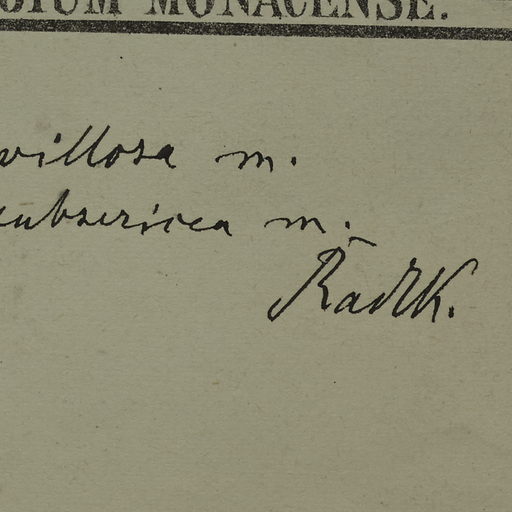 MONACENSE.
villosa m.
subsericea m.
Radlk.